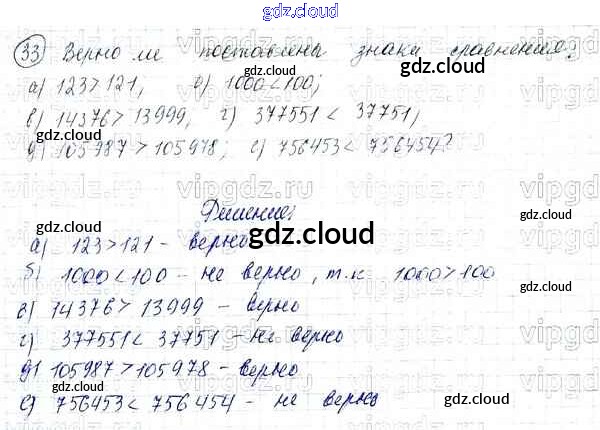 gdz.cloud
33 Верно ли поставлены знаки сравнения?
gdz.cloud
а) 123 > 121, б) 1000 < 100;
в) 14376 > 13999, г) 377551 < 37751,
gdz.cloud gdz.cloud
д) 105987 > 105978; е) 756453 < 756454?
vipgdz.ru
Решение:
gdz.cloud
а) 123 > 121 - верно
gdz.cloud
б) 1000 < 100 - не верно, т.к 1000 > 100
gdz.cloud
в) 14376 > 13999 - верно
gdz.cloud
г) 377551 < 37751 - не верно
д) 105987 > 105978 - верно
gdz.cloud gdz.cloud
е) 756453 < 756454 - не верно